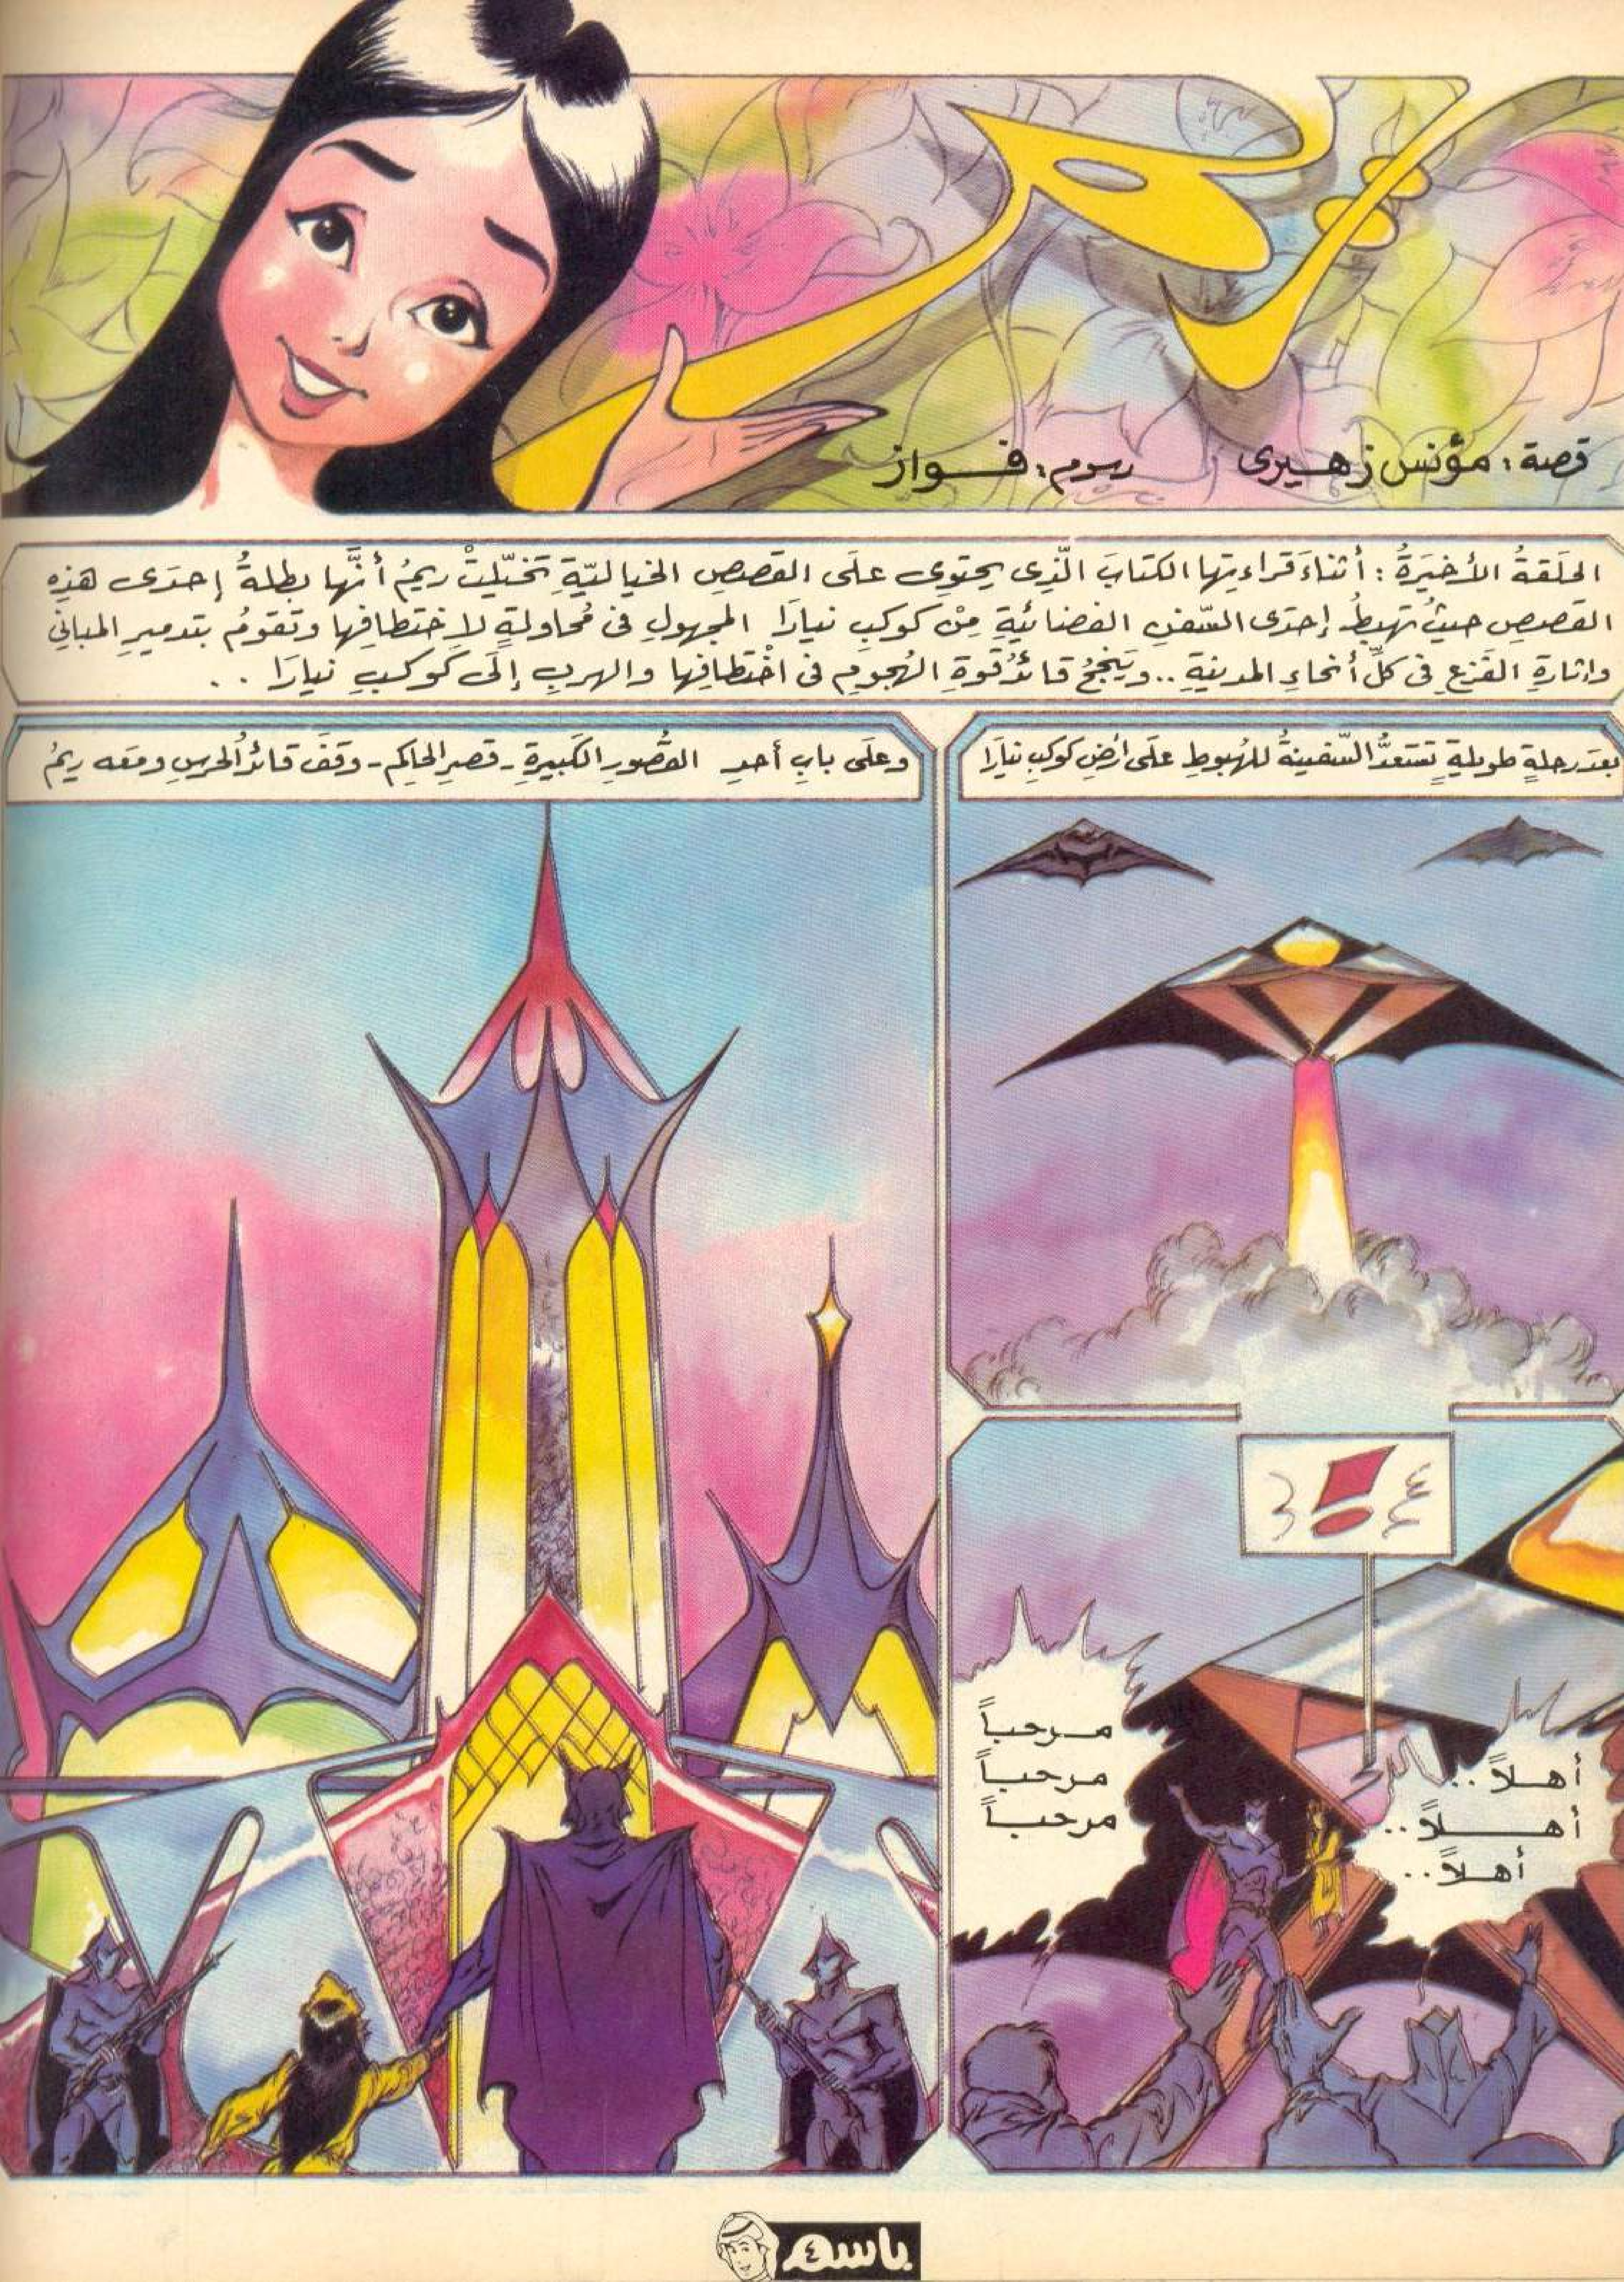 ريم
قصة: مؤنس زهيرى رسوم: فواز
الحَلَقةُ الأخيرَةُ: أثناءَ قراءتِها الكتابَ الَّذِى يحتوِى علَى القصصِ الخياليّةِ تخيّلتْ ريمُ أنَّها بطلةُ إحدَى هذِهِ
القصصِ حيثُ تهبِطُ إحدَى السّفنِ الفضائيّةِ مِنْ كوكبِ نيارَا المجهولِ فى مُحاولةٍ لاختطافِها وتقومُ بتدميرِ المبانِى
وإثارةِ الفَزعِ فى كلِّ أنحاءِ المدينةِ.. ويَنجحُ قائدُ قوةِ الهُجومِ فى اخْتطافِها والهربِ إلَى كَوكبِ نيارَا . .
بعدَ رحلةٍ طويلةٍ تَستعدُّ السّفينةُ للهُبوطِ علَى أرضِ كوكبِ نيارَا
!
أهلاً..
أهلاً..
أهلاً..
مرحباً
مرحباً
مرحباً
وعلَى بابِ أحدِ القصُورِ الكَبيرةِ - قصرِ الحاكِمِ - وقفَ قائدُ الحَرسِ ومعَه ريمُ
باسم
٤